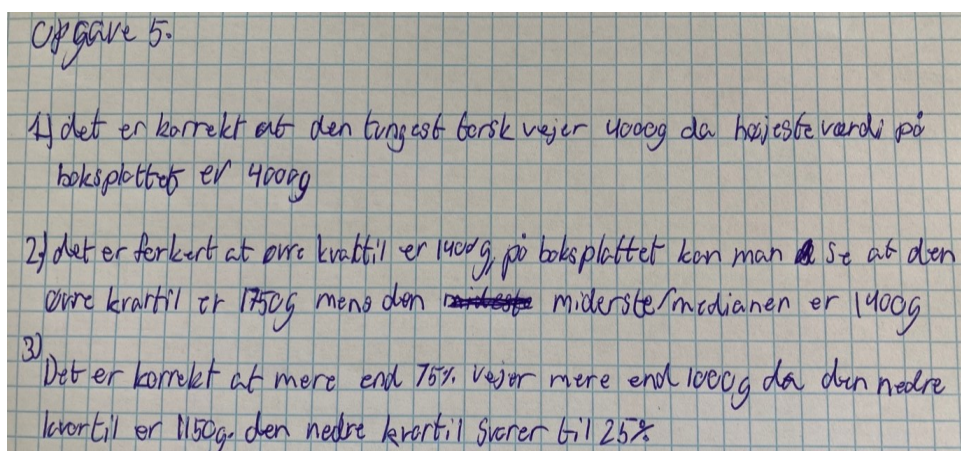 Opgave 5.
1) det er korrekt at den tungest torsk vejer 4000g da højeste værdi på
boksplottet er 4000g
2) det er forkert at øvre kvattil er 1400g, på boksplottet kan man se at den
øvre krartil er 1750g mens den miderste/medianen er 1400g
3)
Det er korrekt at mere end 75% vejer mere end 1000g da den nedre
kvartil er 1150g. den nedre krartil svarer til 25%